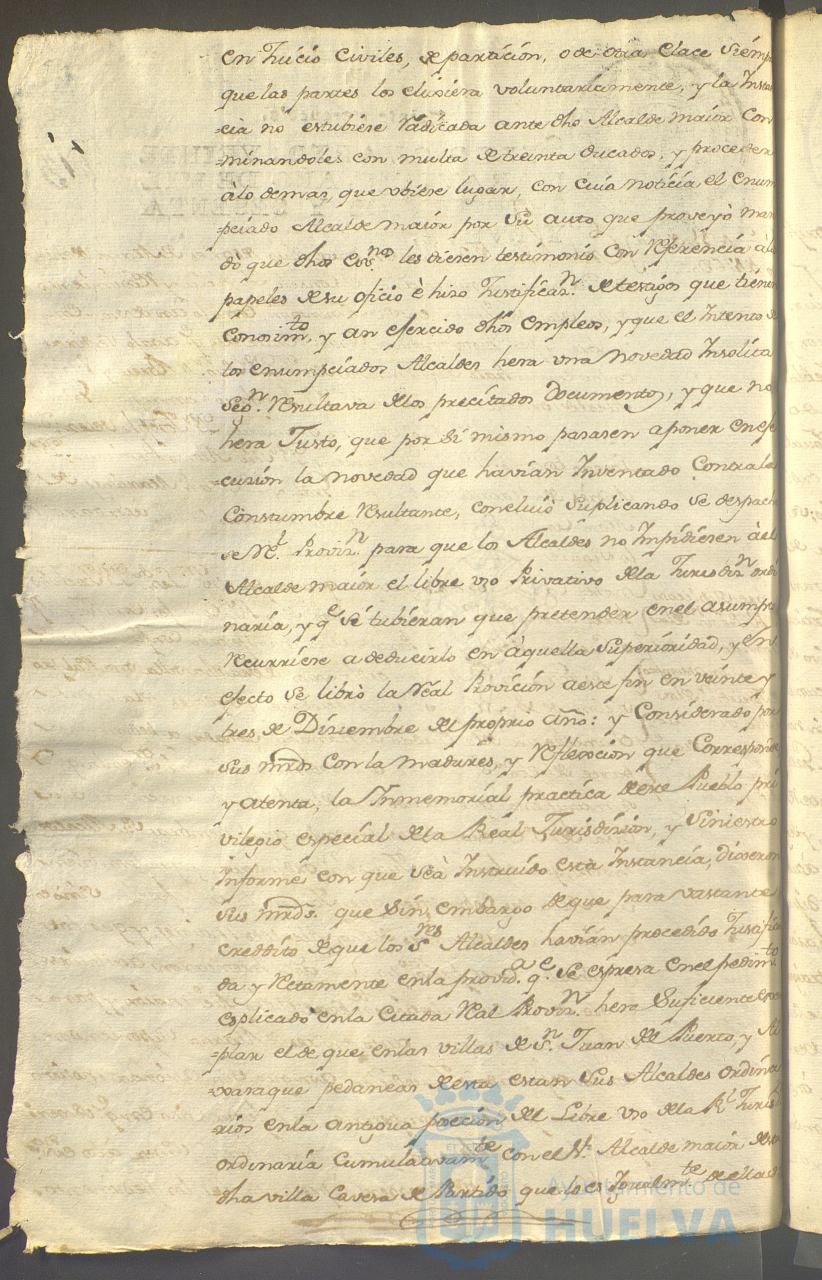 en Juicio Civiles, de partición, o de otra Clace Siemp
que las partes los elixiera voluntariamente, y la Insta
=cia no estubiese Radicada ante dho Alcalde maior Con
=minandoles con multa de treinta ducados, y proceder
à lo demas, que ubiese lugar, con cuia noticia el enum
=peiado Alcalde maior por Su auto que proveyò man
dò que dhos Ess.nos les diesen testimonio con Referencia à lo
papeles de su oficio è hizo Justificaz.n de testigos que tienen
Conosim.to, y an esercido dhos empleos, y que el Intento de
los enumpeiados Alcaldes hera una novedad Insolita
Seg.n Resultava de los precitados Documentos, y que no
hera Justo, que por Si mismo pasasen a poner en ese
=cusion la novedad que havian Inventado Contra la
Constumbre Resultante, concluiò Suplicando Se despach
se Rl. Proviz.n para que los Alcaldes no Impidiesen à el
Alcalde maiór el libre uso Privativo de la Jurisdiz.n ordi
naria, y q.e Si tubieran que pretender en el asumpt
Recurriese a deducirlo en àquella Superioridad, y en
efecto Se librò la Real Provición a este fin en veinte y
tres de Diziembre del proprio año: y Considerado por
Sus mrds Con la madurés, y Reflexcion que Corresponde
y atenta, la Inmemorial practica de este Pueblo pri
vilegio especial de la Real Jurisdision, y Siniestro
Informe con que Seà Instruido esta Instancia, dixeron
Sus mrds. que Sin embargo de que para vastante
creddito de que los S.res Alcaldes havian procedido Justifica
da y Rectamente en la provid.a q.e Se espresa en el pedim.to
esplicado en la Citada Real Proviz.n hera Suficiente exem
=plar el de que en las villas de S.n Juan del Puerto, y Al
=xaraque pedaneas de esta estan Sus Alcaldes ordina
=rios en la antigua poseción del Libre uso de la Rl. Juris.n
ordinaria Cumulativam.te con el Sr. Alcalde maior de es
dha villa Cavesa de Partido que lo es Igualm.te de ella
Ayuntamiento de
HUELVA